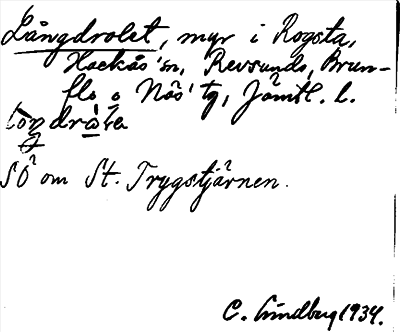 Långdrolet, myr i Rogsta,
Hackås' sn, Revsunds, Brun-
flo o Näs' tg, Jämtl. l.
SÖ om St. Trygstjärnen.
C. Lindberg 1934.